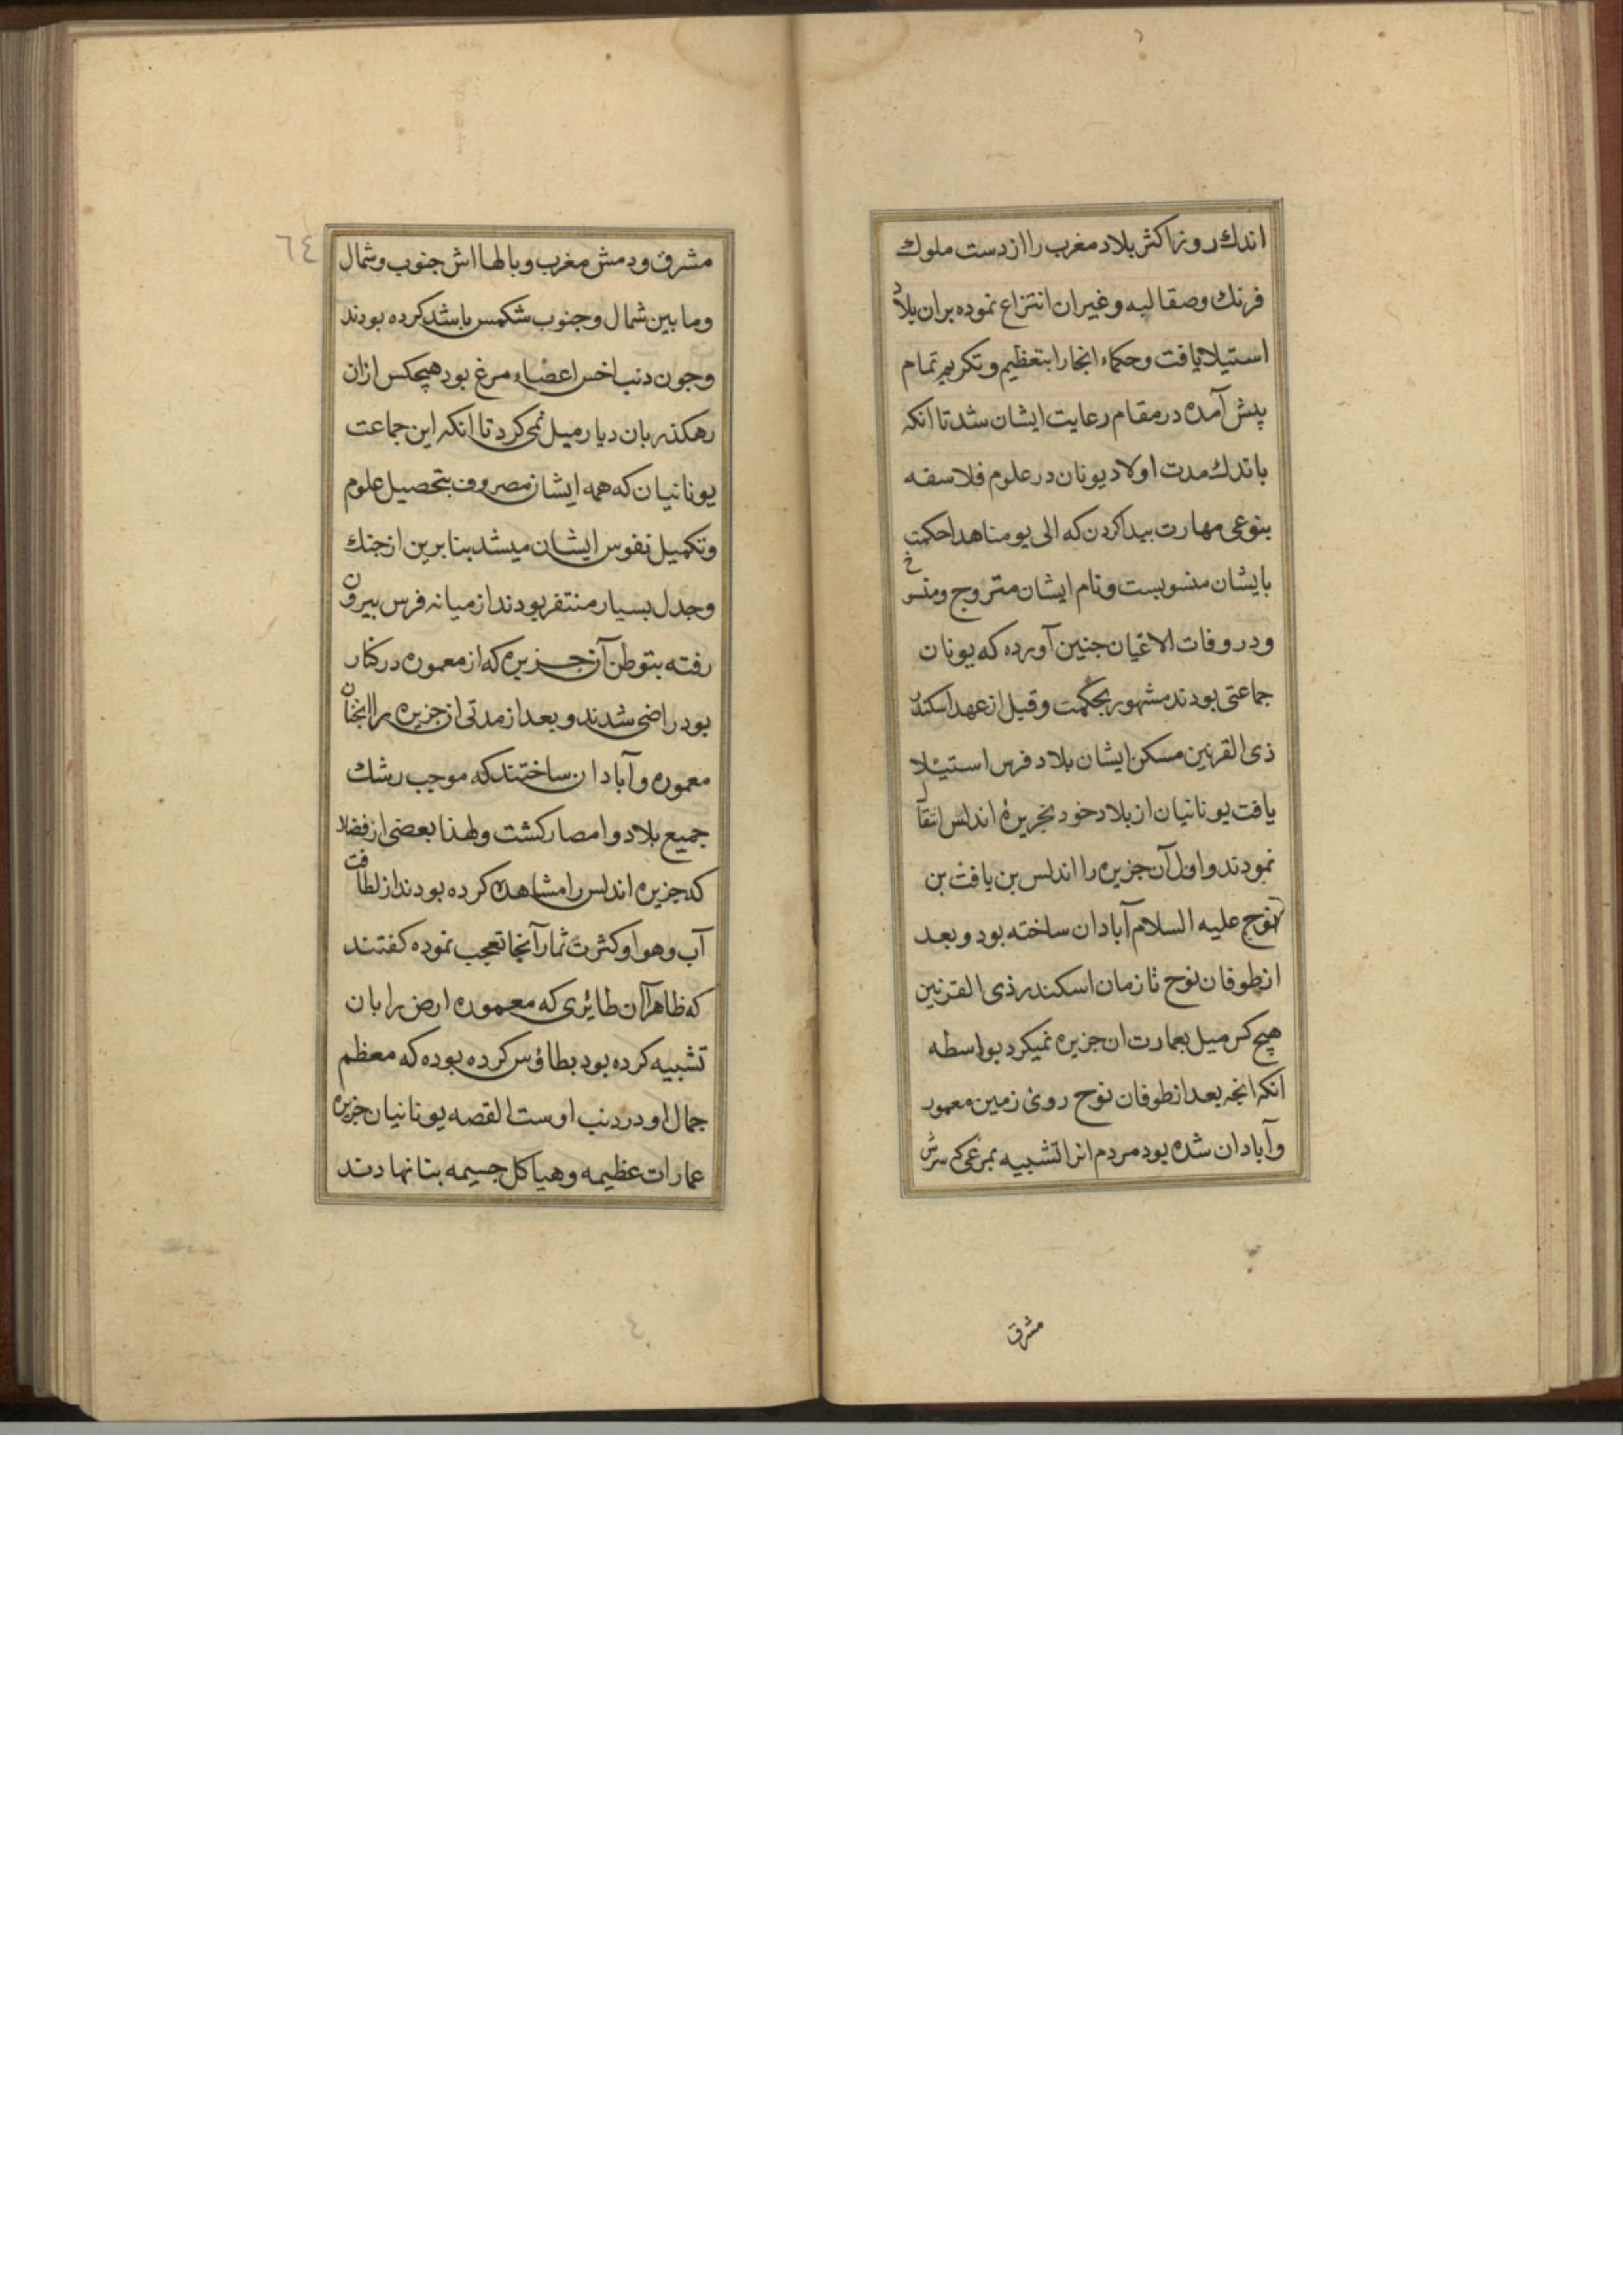 اندك روز اكثر بلاد مغرب را از دست ملوك
فرنك وصقالبه وغيران انتزاع نموده بران بلاد
استيلا يافت وحكماء انجارا بتعظيم وتكريم تمام
پيش آمده در مقام رعايت ايشان شد تا انكه
باندك مدت اولاد يونان در علوم فلاسفه
بنوعى مهارت بيدا كردن كه الى يومنا هذا حكمت
بايشان منسوبست ونام ايشان متروج ومنسوخ
ودر وفات الاعيان جنين آورده كه يونان
جماعتى بودند مشهور بحكمت وقبل از عهد اسكندر
ذى القرنين مسكن ايشان بلاد فرس استيلا
يافت يونانيان از بلاد خود بجزيرۀ اندلس انتقال
نمودند واول آن جزيره را اندلس بن يافث بن
نوح عليه السلام آبادان ساخته بود وبعد
از طوفان نوح تا زمان اسكندر ذى القرنين
هيچ كس ميل بعمارت ان جزيره نميكرد بواسطه
انكه انجه بعد از طوفان نوح روى زمين معمور
وآبادان شده بود مردم انرا تشبيه بمرغى كه سرش
مشرق
٦٤
مشرق ودمش مغرب وبالهااش جنوب وشمال
وما بين شمال وجنوب شكمس باشد كرده بودند
وجون دنب اخس اعضاء مرغ بود هيچكس ازان
رهكذر بان ديار ميل نمى كرد تا انكه اين جماعت
يونانيان كه همه ايشان مصروف بتحصيل علوم
وتكميل نفوس ايشان ميشد بنا برين از جنك
وجدل بسيار متنفر بودند از ميانه فرس بيرون
رفته بتوطن آن جزيره كه از معموره در كنار
بود راضى شدند وبعد از مدتى از جزيره را انجنان
معموره وآبادان ساختند كه موجب رشك
جميع بلاد وامصار كشت ولهذا بعضى از فضلا
كه جزيره اندلس را مشاهده كرده بودند از لطافت
آب وهوا وكثرت ثمار آنجا تعجب نموده كفتند
كه ظاهرا آن طائرى كه معموره ارض را بان
تشبيه كرده بود بطاؤس كرده بوده كه معظم
جمال او در دنب اوست القصه يونانيان جزيره
عمارات عظيمه وهياكل جسيمه بنا نهادند